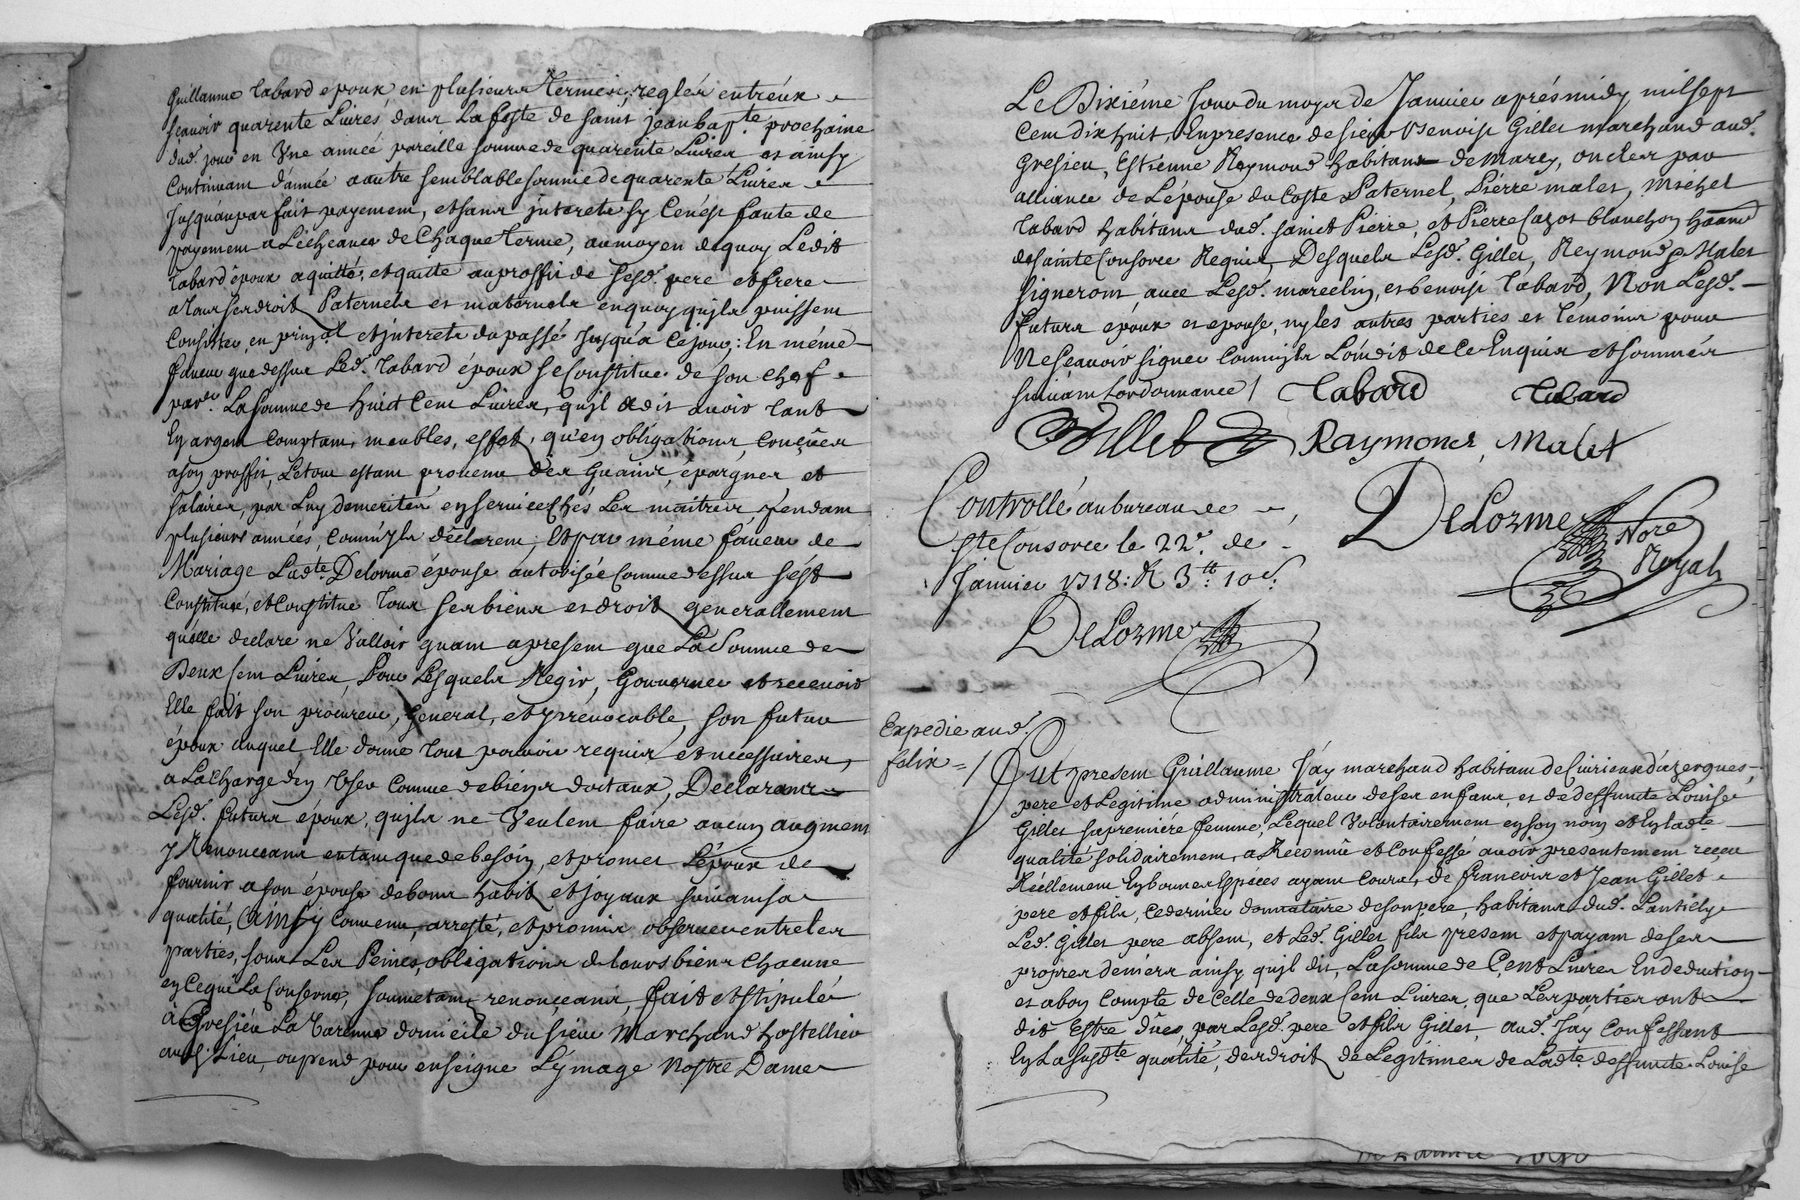 Guillaume Tabard epoux en plusieurs termes reglés entréux
scavoir quarente Livres dans La feste de saint jean bapte. prochaine
dud. jour en Une année pareille somme de quarente Livres et ainsy
Continuant d'année a autre semblable somme de quarente Livres
Jusqu'au parfait payement, et sans jnterets sy Cenést faute de
payement a L'écheance de Chaque terme, au moyen de quoy Ledit
tabard époux a quitté, et quitte au proffit de sesd. pere et frere
a tous ses droits Paternels et maternels en quoy quils puissent
Consister, en prinpal et jnterets du passé Jusqu'a Ce jour; En méme
faveur que dessus Led. Tabard époux se Constitue de son chef
La somme de huict Cent Livres, qu'jl a dit avoir tant
En argent comptant, meubles, effets, qu'en obligations, conçües
a son proffit, Le tout estant provenu des Guains, épargnes et
salaires, par Luy demerités en service chés Les maitres pendant
plusieurs années, comm'jls déclarent; Et par méme faveur de
Mariage Ladte. Delorme épouse autorisée Comme dessus s'est
Constitué, et Constitue tous ses biens et droits generallement
qu'elle declare ne Valloir quant a present que La Somme de
Deux Cent Livres, Pour Lesquels Regir, Gouverner et recevoir
Elle fait son procureur, General, et jrrevocable, son futur
époux auquel Elle donne tous pouvoirs requis et necessaires,
a La Charge d'en User Comme de biens dotaux, Declarants
Lesd. futurs époux, qu'jls ne Veulent faire aucun augment
y Renonceant en tant que de besoin, et promet L'époux de
fournir a son épouse de bons habits et joyaux suivant sa
qualité, Ainsy Convenu, arresté, et promis observer entre les
parties, sous Les Peines, obligations de leurs biens chacune
en Ceque La Conserne, soumetant, renonceant, fait et stipulé
à Gresieu La Varenne domicile du sieur Marchand hostellier
aud. Lieu, ou pend pour enseigne L'ymage Nostre Dame
Le Dixiéme Jour du moys de Janvier aprés midy mil sept
Cent dix huit, En presence de sieur Benoist Gillet marchand aud.
Gresieu, Estienne Reymond habitant de Marcy, oncles par
alliance de L'épouse du Coste Paternel, Pierre malet, Michel
Tabard habitans dud. sainct Pierre, et Pierre Cazot blanchon hãnt
de sainte Consorce Requis, Desquels Lesd. Gillet, Reymond, et Malet
signeront avec Lesd. marcelin, et benoist Tabard, Non Lesd.
futurs époux et epouse, ny les autres parties et temoins pour
Ne scavoir signer comm'jls L'ont dit de Ce Enquis et sommés
suivant Lordonnance / Tabard Tabard
Gillet Raymond, Malet
Controllé au bureau de
Ste Consorce le 22e. de
Janvier 1718: R 3tt. 10s.
DeLorme
DeLorme Nore
Royal
Expedie aud.
felix = /
Fut present Guillaume Fay marchand habitant de Civrieux d'azergues,
pere et Legitime administrateur de ses enfans, et de deffuncte Louise
Gillet sa premiére femme, Lequel Volontairement en son nom et En ladte
qualité solidairement, a Reconnu et Confessé avoir presentement receu
Réellement En bonnes Espéces ayant Cours, de francois et Jean Gillet
pere et fils, ce dernier donnataire de son pere, habitans dud. Lantilly
Led. Gillet pere absent, et Led. Gillet fils present et payant de ses
propres deniers ainsy qu'jl dit, La somme de Cent Livres En deduction
et a bon Compte de Celle de deux Cent Livres, que Les parties ont
dit Estre dûes, par Lesd. pere et fils Gillet, aud. Fay Confessant
En La susdte qualité, des droits de Legitimes de Ladte. deffuncte Louise